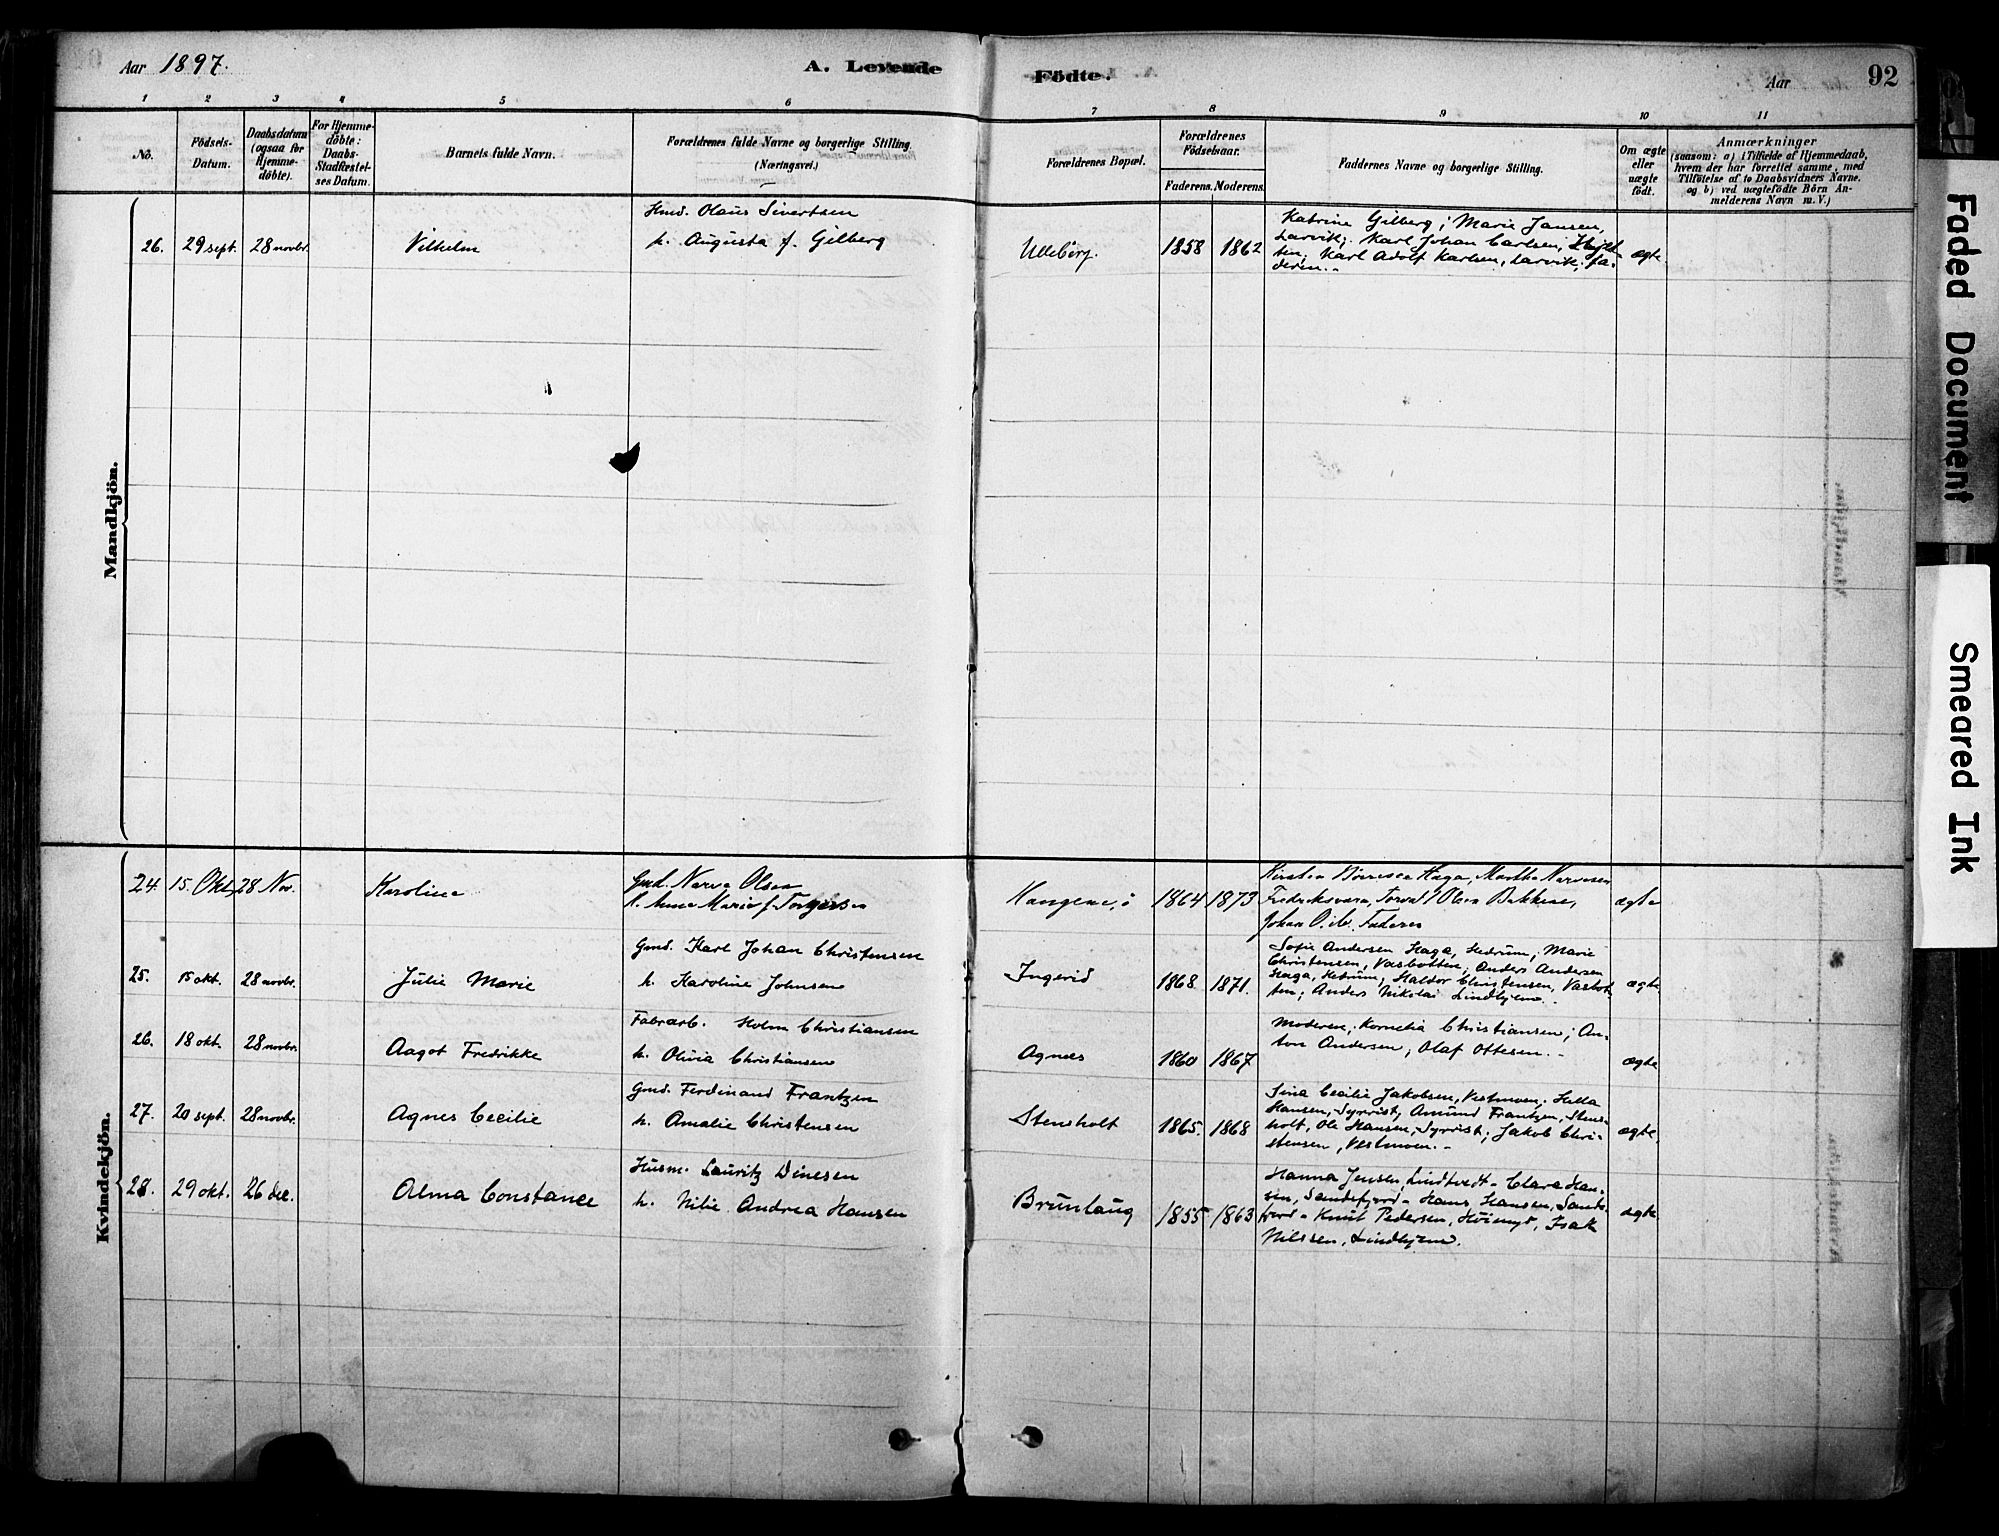 Aar 1897.
A. Levende Födte.
Aar
92
1 2 3 4 5 6 7 8 9 10 11
No.
Födsels-Datum.
Daabsdatum (ogsaa for Hjemme-döbte).
For Hjemme-döbte: Daabs-Stadfæstel-ses Datum.
Barnets fulde Navn.
Forældrenes fulde Navne og borgerlige Stilling. (Næringsvei.)
Forældrenes Bopæl.
Forældrenes Födselsaar.
Faderens. Moderens.
Faddernes Navne og borgerlige Stilling.
Om ægte eller uægte födt.
Anmærkninger
(saasom: a) i Tilfælde af Hjemmedaab, hvem der har forrettet samme, med Tilföielse af to Daabsvidners Navne. og b) ved uægtefödte Börn An-melderens Navn m. V.)
Mandkjön.
26. 29 sept. 28 novbr. Vilhelm
Hmd. Olaus Sivertsen
h. Augusta f. Gilberg
Ulleberg. 1858 1862
Katrine Gilberg; Marie Jansen,
Larvik; Karl Johan Carlsen,
Karl Adolf Karlsen, Larvik; fa-
deren.-
ægte
Kvindekjön.
24. 15. Okt. 28 Nov. Karoline
Gmd. Narve Olsen
h. Anne Marie f. Torgersen
1864 1873
Kirsten Börresen Haga, Marthe Narvesen
Fredriksværn, Torvald Olsen Bakkene,
Johan Faderen
ægte
25. 15 okt. 28 novbr. Julie Marie
Gmd. Karl Johan Christensen
h. Karoline Johnsen
Ingerid 1868 1871.
Sofie Andersen Haga, Hedrum; Marie
Christensen, Vasbotten; Anders Andersen
Haga, Hedrum; Haldor Christensen, Vasbot-
ten; Anders Nikolai Lindhjem.-
ægte
26. 18 okt. 28 novbr. Aagot Fredrikke
Fabrarb. Holm Christiansen
h. Olivia Christiansen
Agnes 1860 1867
Moderen, Kornelia Christiansen; An-
ton Andersen; Olaf Ottesen.-
ægte
27. 20 sept. 28 novbr. Agnes Cecilie
Gmd. Ferdinand Frantzen
h. Amalie Christensen
Stensholt 1865. 1868
Sina Cecilie Jakobsen, Vestmoen; Hella
Hansen, Syrrist; Amund Frantzen, Stens-
holt, Ole Hansen, Syrrist; Jakob Chri-
stensen, Vestmoen.-
ægte
28. 29 okt. 26 dec. Alma Constance
Husm. Lauritz Dinesen
h. Nilie Andrea Hansen
Brunlaug 1855 1863
Hanna Jensen, Lindtvedt - Clara Han-
sen, Sandefjord - Hans Hansen, Sande-
fjord - Knut Pedersen, Höimyr, Isak
Nilssen, Lindhjem.
ægte
Faded Document
Smeared Ink